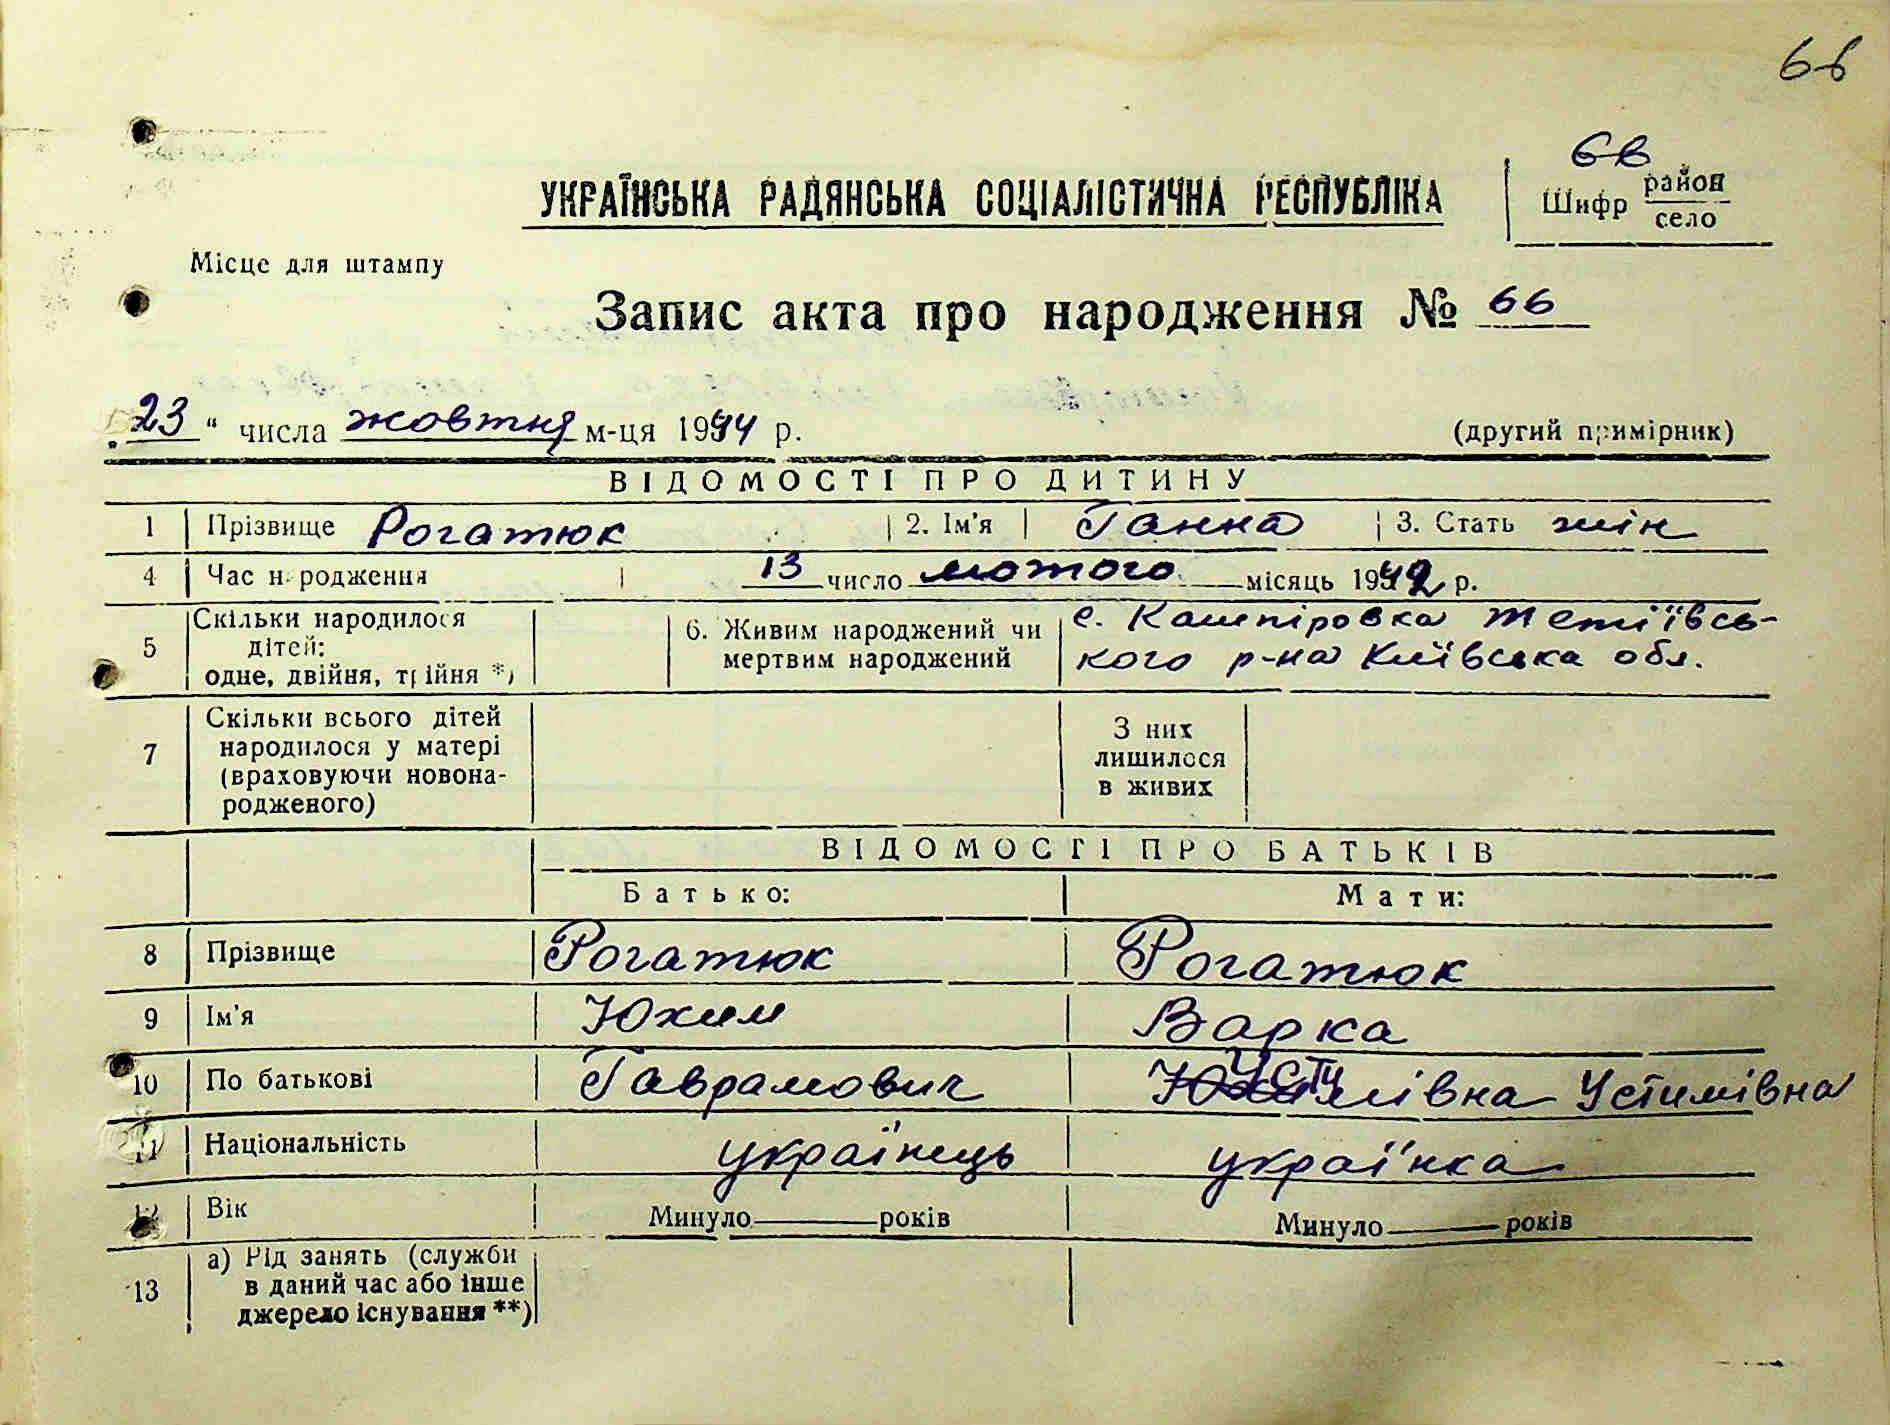 66
66
УКРАЇНСЬКА РАДЯНСЬКА СОЦІАЛІСТИЧНА РЕСПУБЛІКА
Шифр район
село
Місце для штампу
Запис акта про народження № 66
„23“ числа жовтня м-ця 1944 р. (другий примірник)
ВІДОМОСТІ ПРО ДИТИНУ
1 Прізвище Рогатюк 2. Ім'я Ганна 3. Стать жін
4 Час народження 13 число лютого місяць 1942 р.
5 Скільки народилося дітей: одне, двійня, трійня *) 6. Живим народжений чи мертвим народжений с. Кашпіровка Тетіївсь-
кого р-на Київська обл.
7 Скільки всього дітей народилося у матері (враховуючи новонародженого) З них лишилося в живих
ВІДОМОСТІ ПРО БАТЬКІВ
Батько: Мати:
8 Прізвище Рогатюк Рогатюк
9 Ім'я Юхим Варка
10 По батькові Гаврамович Устимівна Устимівна
11 Національність українець українка
12 Вік Минуло років Минуло років
13 а) Рід занять (служби в даний час або інше джерело існування **)